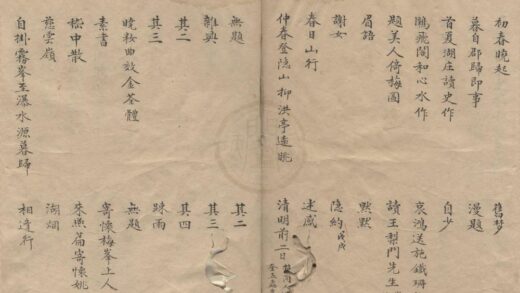 初春曉起
暮自郡歸即事
首夏湖庄讀史作
鵬飛閣和心水作
題美人倚梅圖
眉語
謝女
春日山行
仲春登隱山柳洪亭遠眺
無題
雜興
其二
其三
晚妝曲效金荃體
素書
嵇中散
慈雲嶺
自掛霧峯至瀑水源暮歸
舊夢
漫題
自少
哀鴻送施鐵珊
讀王梨門先生
默默
隱約戊戌
述感
清明前二日
其二
其三
其四
踈雨
無題
寄懷梅峯上人
燕篇寄懷姚
湖烟
相逢行